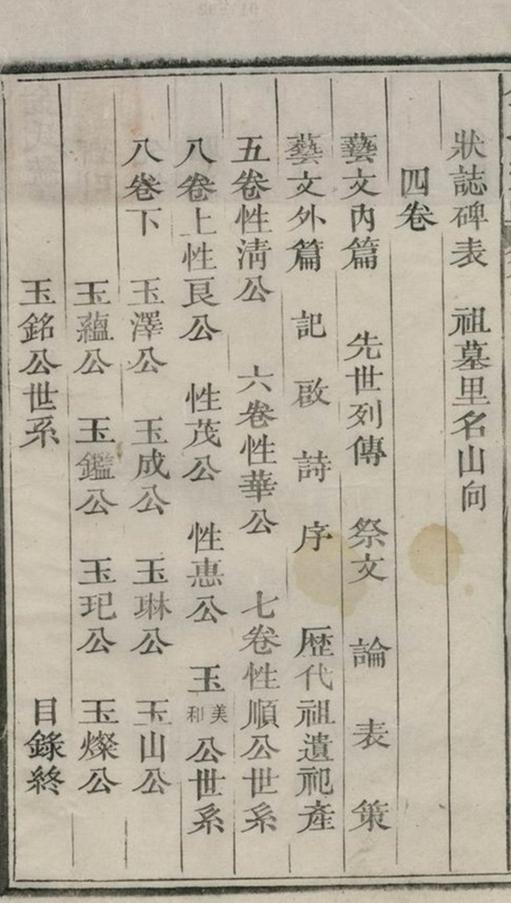 狀誌碑表　祖墓里名山向
四卷
藝文內篇　先世列傳　祭文　論　表　策
藝文外篇　記　啟　詩　序　歷代祖遺祀產
五卷性淸公　六卷性華公　七卷性順公世系
八卷上性艮公　性茂公　性惠公　玉美和公世系
八卷下　玉澤公　玉成公　玉琳公　玉山公
玉蘊公　玉鑑公　玉玘公　玉燦公
玉銘公世系　目錄終